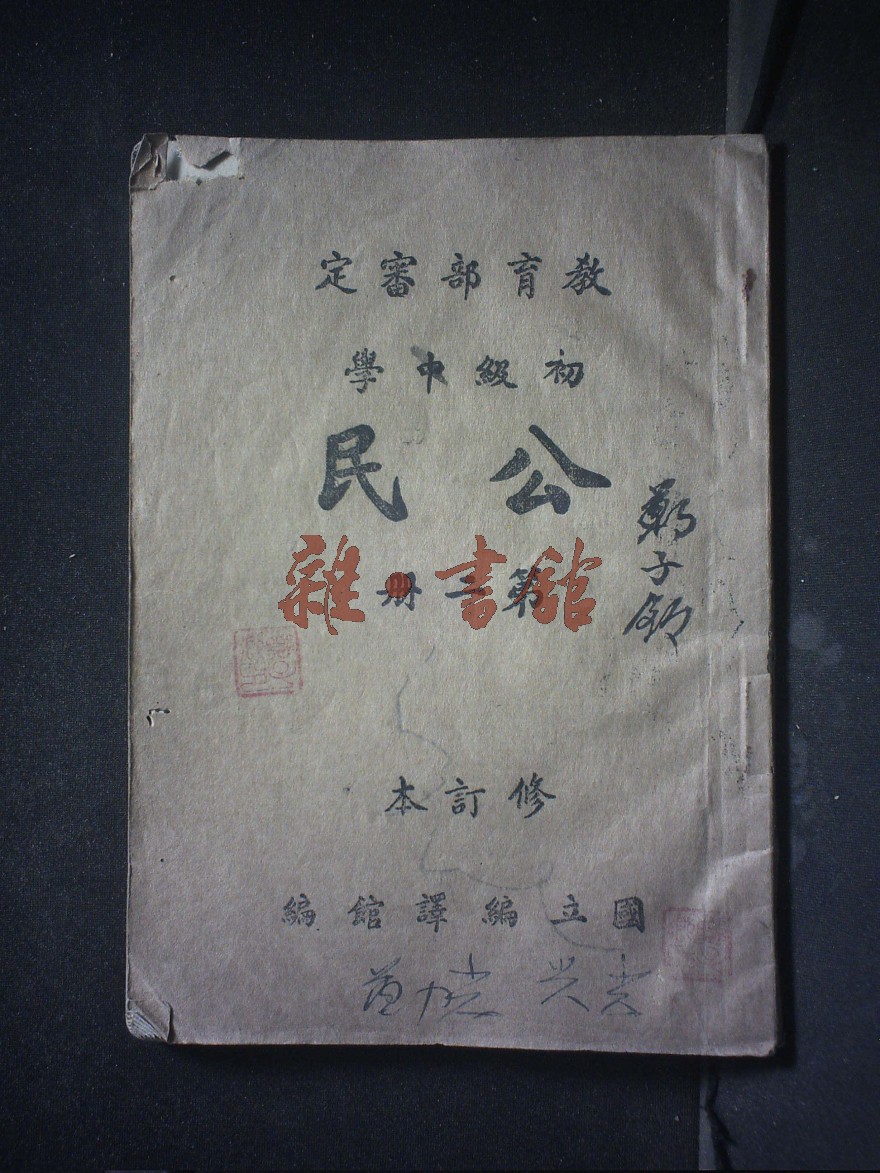 教育部審定
初級中學
公民
第二册
雜·書館
修訂本
國立編譯館編